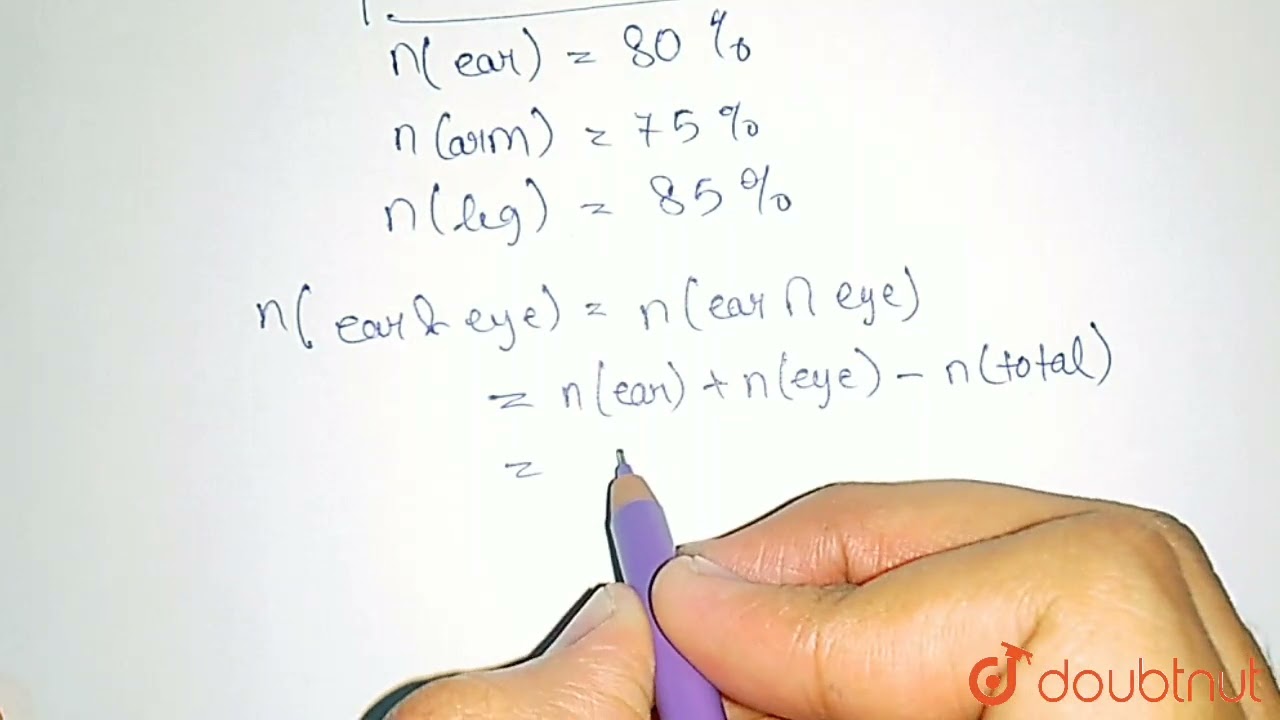 n(ear) = 80%
n(arm) = 75%
n(leg) = 85%
n(ear & eye) = n(ear ∩ eye)
= n(ear) + n(eye) - n(total)
=
doubtnut